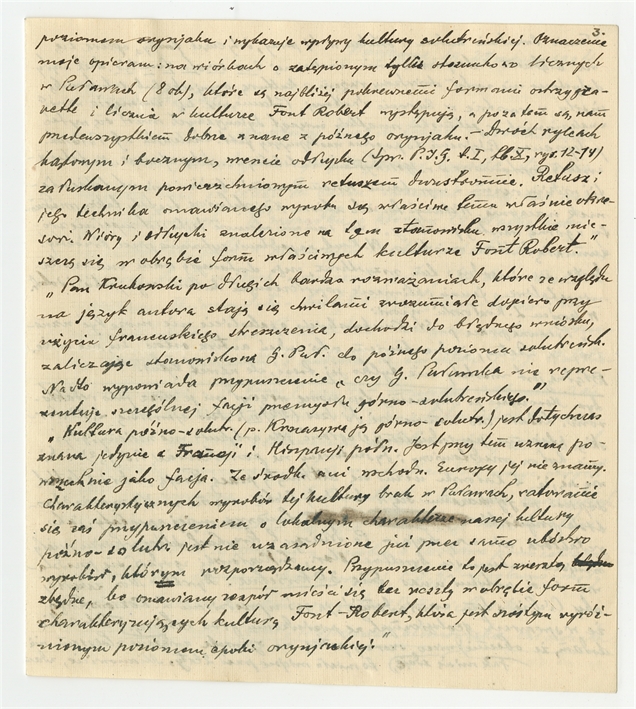 3.
poziomem orynjaku i wykazuje wpływy kultury solutreńskiej. Oznaczenie
moje opieram: na wiórkach o zatępionym tylcu stosunkowo licznych
w Puławach (8 ok), które są najbliżej pokrewnemi formami ostrzy gra-
vette i licznie w kulturze Font Robert występują, a poza tem są nam
przedewszystkiem dobrze znane z późnego orynjaku. – Dwóch rylcach
kątowym i bocznym, wreszcie odłupku (Spr. P.I.G. t. I, tb. X, rys. 12-14)
załuskanym powierzchniowym retuszem dwustronnie. Retusz i
jego technika omawianego wyrobu są właściwe temu właśnie okre-
sowi. Wióry i odłupki znalezione na tem stanowisku wszystkie mie-
szczą się w obrębie form właściwych kulturze Font Robert."
„Pan Krukowski po długich bardzo rozważaniach, które ze względu
na język autora stają się chwilami zrozumiałe dopiero przy
użyciu francuskiego streszczenia, dochodzi do błędnego wniosku,
zaliczając stanowisko G. Puł. do późnego poziomu solutreńsk.
Nadto wypowiada przypuszczenie „czy G. Puławska nie repre-
zentuje szczególnej facji przemysłu górno-solutreńskiego."
„Kultura późno-solutr. (p. Kroszyna ją górno-solutr.) jest dotychczas
znana jedynie z Francji i Hiszpanji półn. Jest przy tem uznana po-
wszechnie jako facja. Ze środk. ani wschodn. Europy jej nie znamy.
Charakterystycznych wyrobów tej kultury brak w Puławach, ratowanie
się zaś przypuszczeniem o lokalnym charakterze naszej kultury
późno-solutr. jest nie uzasadnione już przez samo ubóstwo
wyrobów, którym rozporządzamy. Przypuszczenie to jest zresztą
zbędne, bo omawiany zespół mieści się bez reszty w obrębie form
charakteryzujących kulturę Font-Robert, która jest szóstym wyróż-
nionym poziomem epoki orynjackiej."